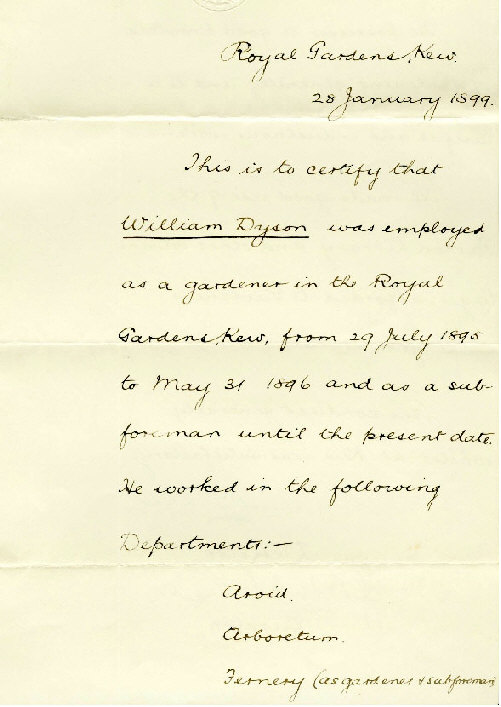 Royal Gardens, Kew.
28 January 1899.
This is to certify that
William Dyson was employed
as a gardener in the Royal
Gardens, Kew, from 29 July 1895
to May 31 1896 and as a sub-
foreman until the present date.
He worked in the following
Departments:—
Aroid.
Arboretum.
Fernery (as gardener & sub foreman